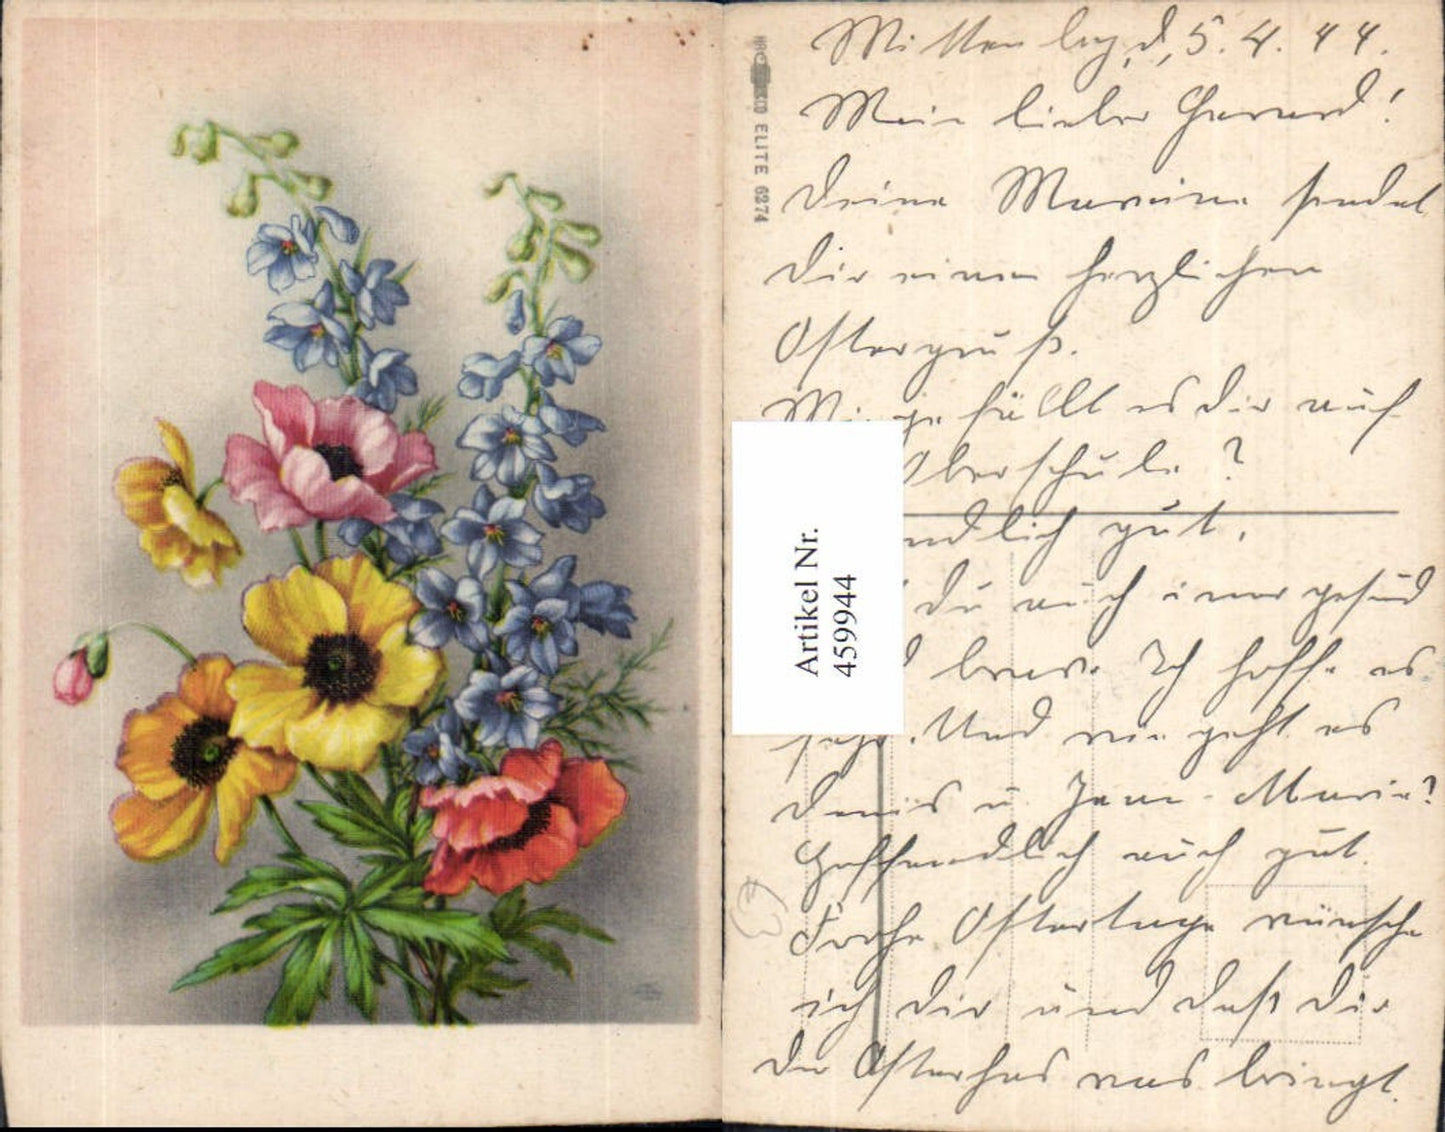 ELITE 6274
d. 5. 4. 44.
Mein lieber Gerard!
Deine Mareine sendet
Dir einen herzlichen
Ostergruß.
gefällt es Dir auf
Oberschule?
endlich gut.
du auch imer gesund
brav. Ich hoffe es
sehr. Und wie geht es
Denis u. Jean-Marie?
Hoffendlich auch gut.
Frohe Ostertage wünsche
ich Dir und daß Dir
der Osterhas was bringt.
Artikel Nr.
459944